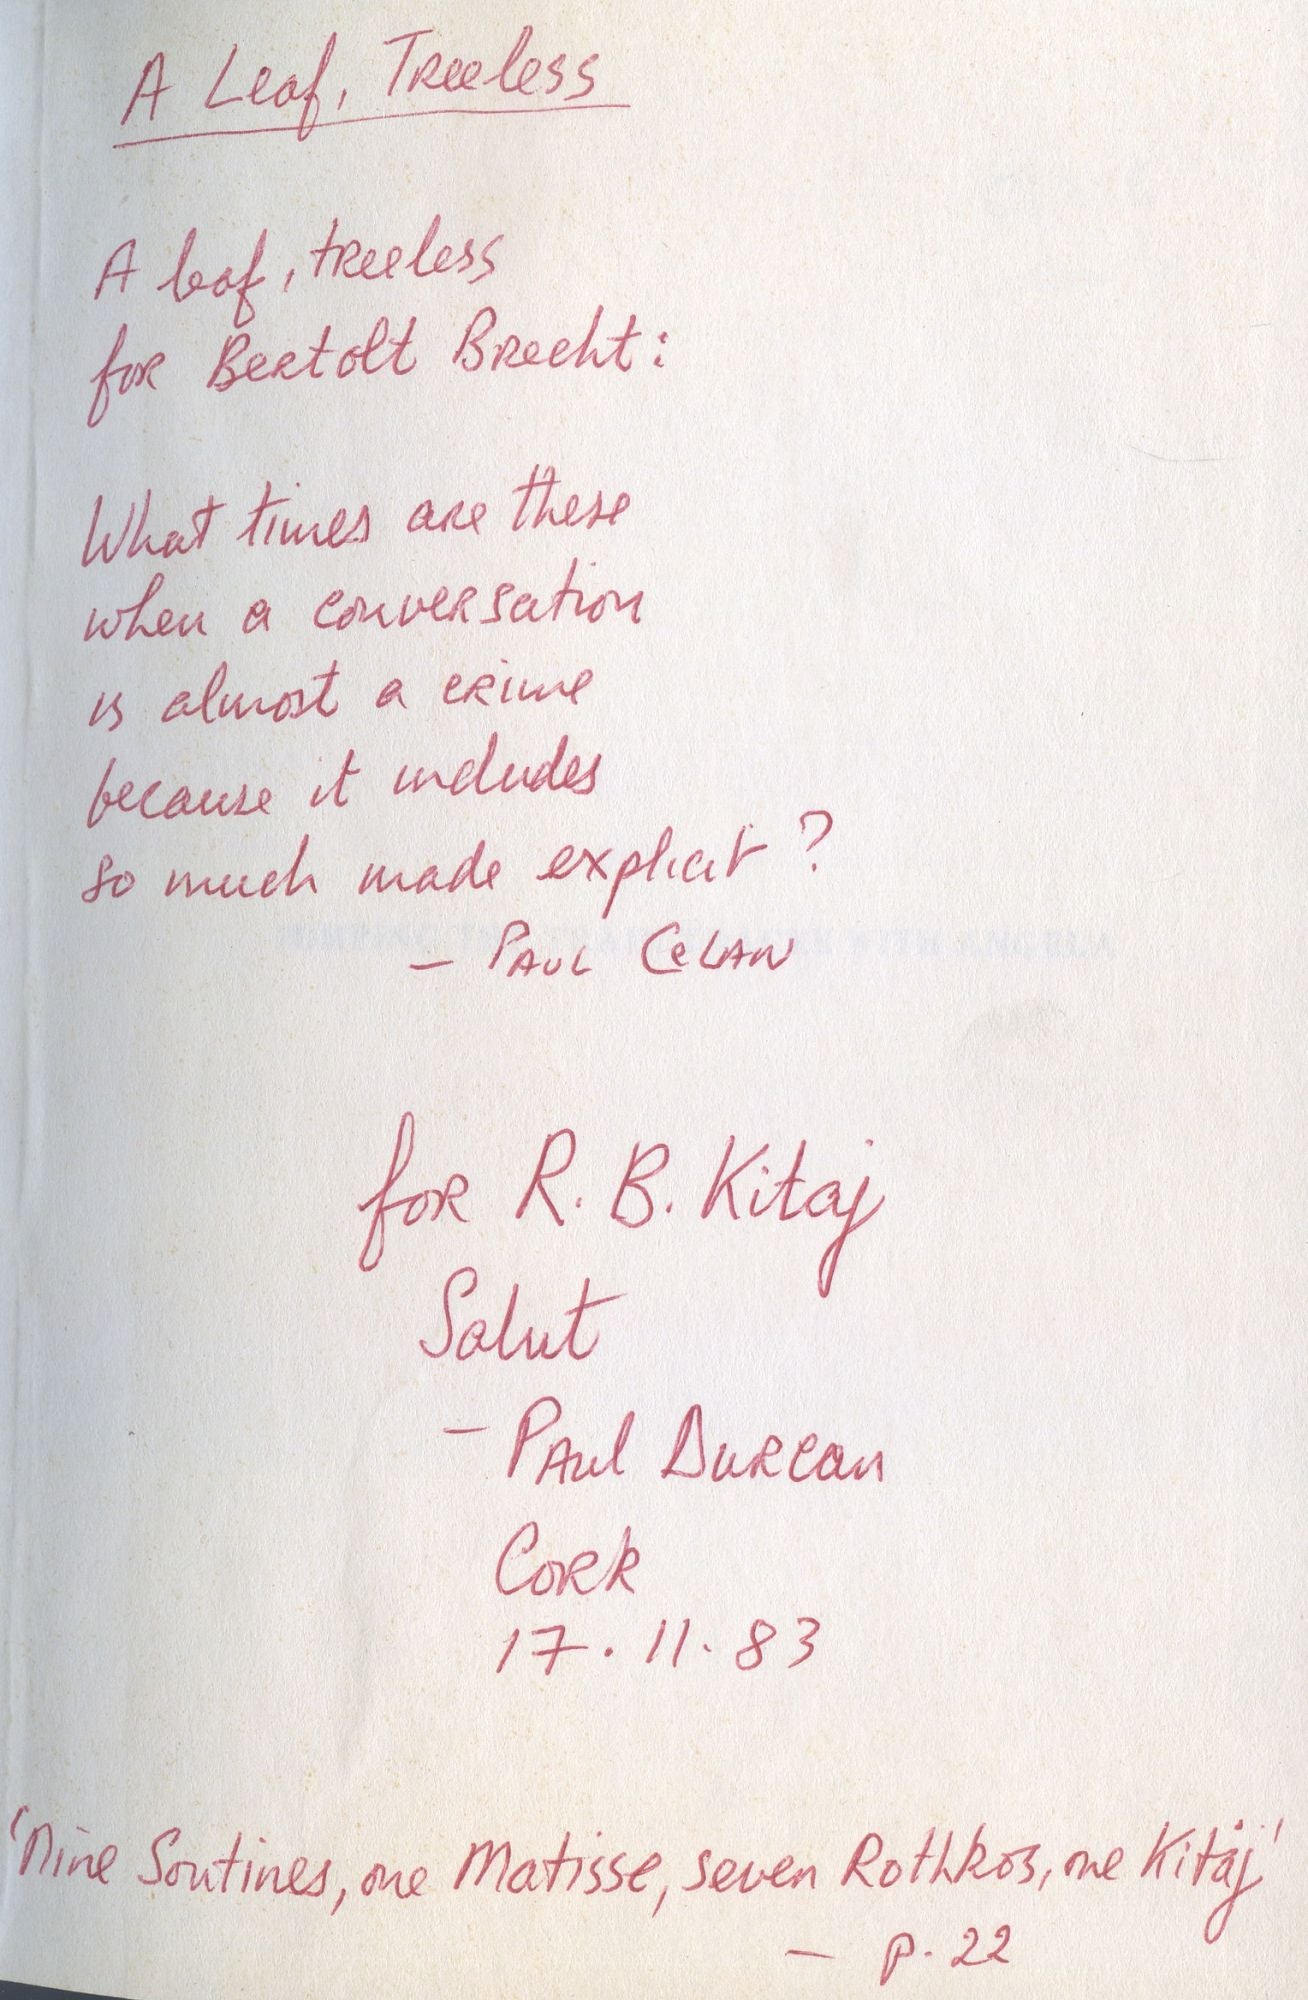 A Leaf, Treeless
A leaf, treeless
for Bertolt Brecht:
What times are these
when a conversation
is almost a crime
because it includes
so much made explicit?
— PAUL CELAN
for R. B. Kitaj
Salut
— Paul Durcan
Cork
17. 11. 83
'Nine Soutines, one Matisse, seven Rothkos, one Kitaj'
— p. 22